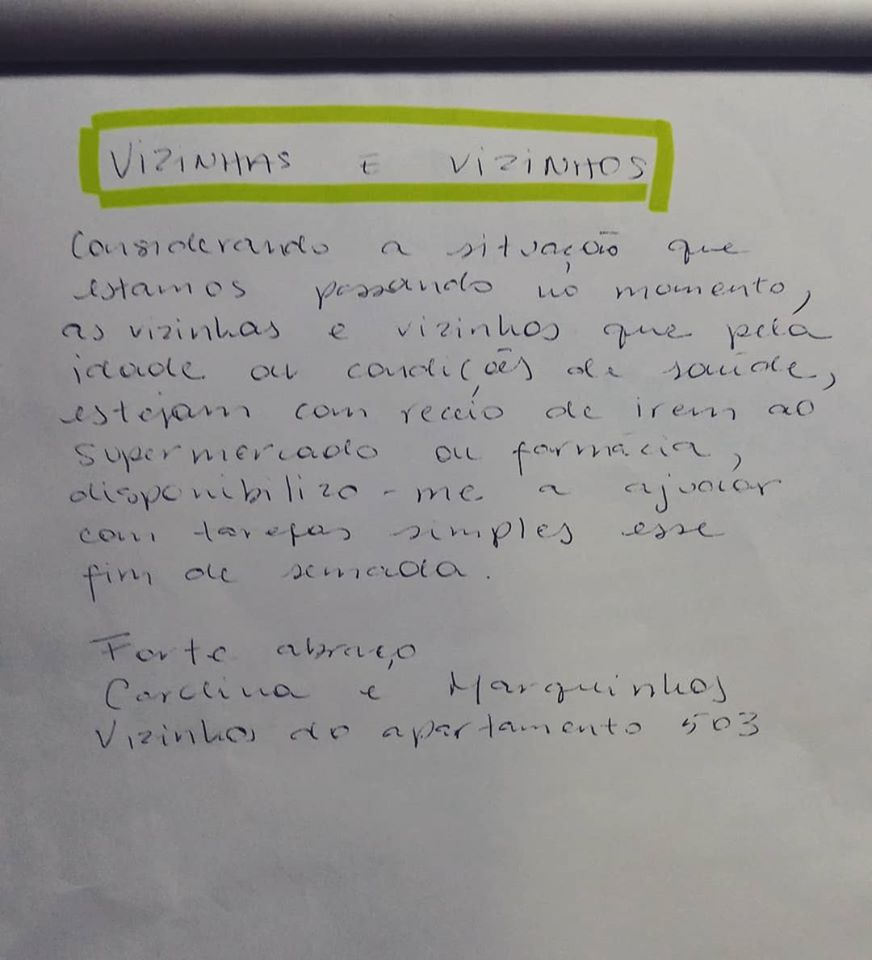 VIZINHAS E VIZINHOS
Considerando a situação que
estamos passando no momento,
as vizinhas e vizinhos que pela
idade ou condições de saúde,
estejam com receio de irem ao
supermercado ou farmácia,
disponibilizo-me a ajudar
com tarefas simples esse
fim de semada.
Forte abraço
Carolina e Marquinhos
Vizinhos do apartamento 503